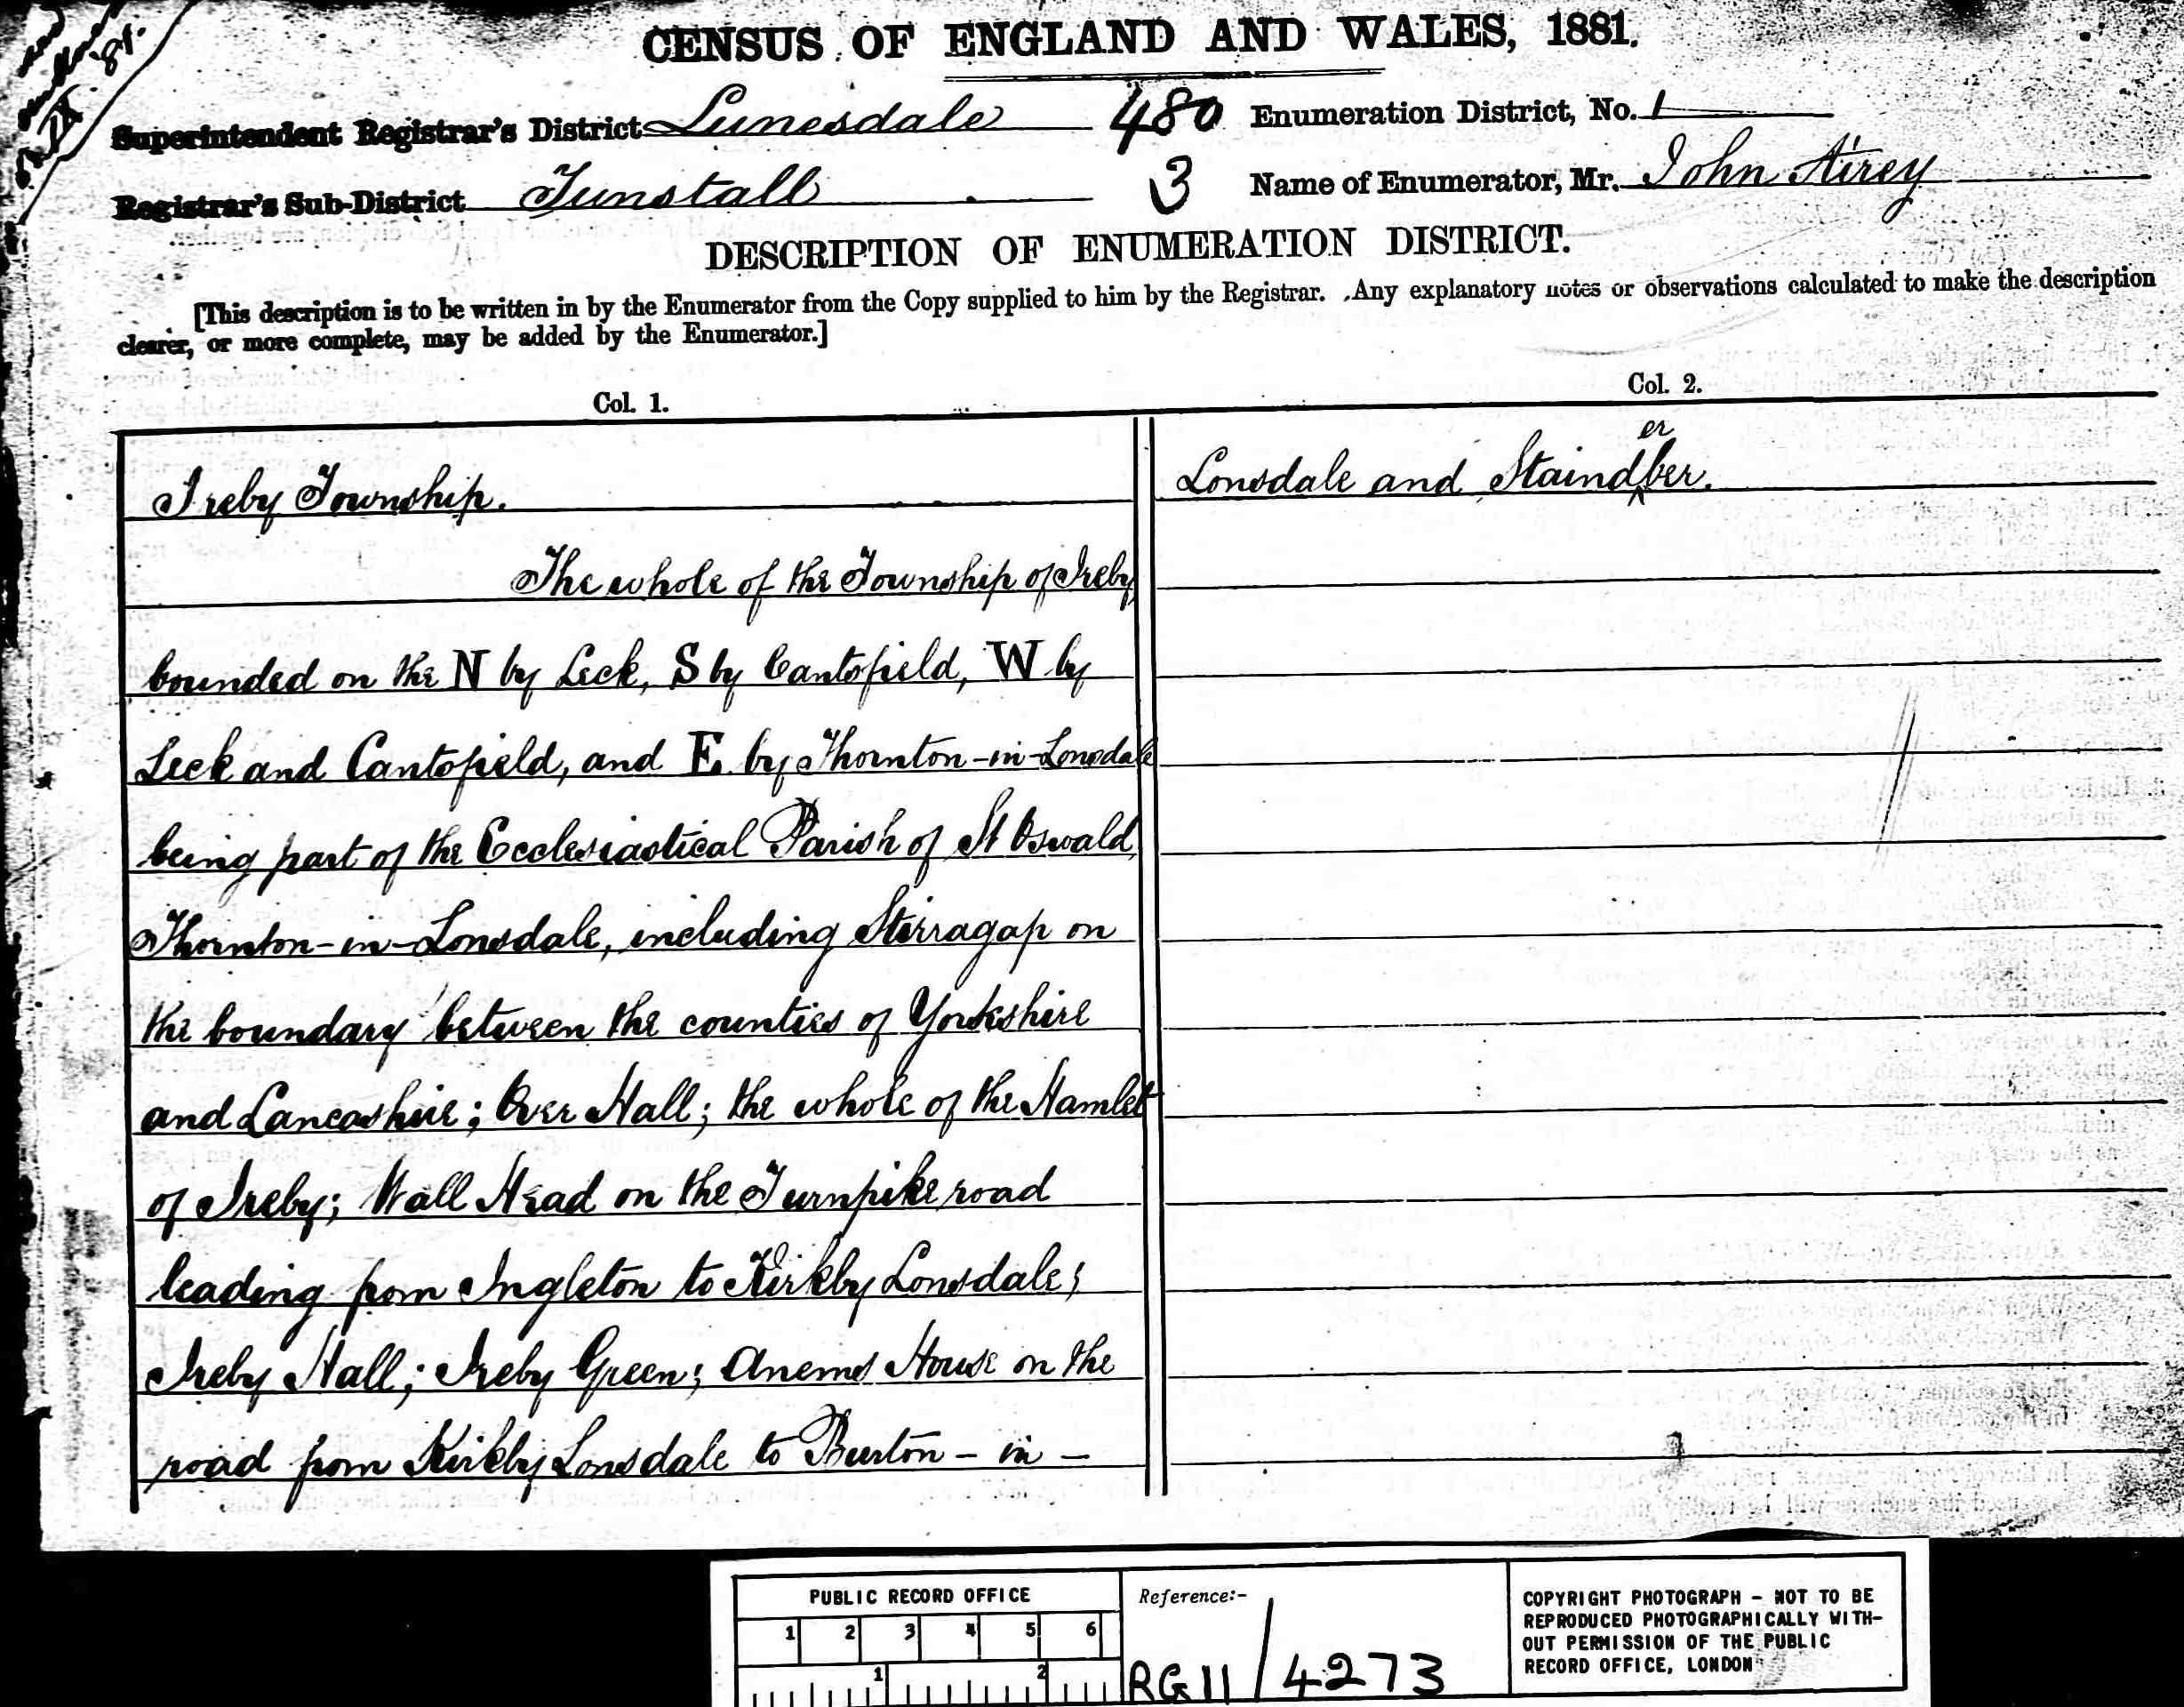 CENSUS OF ENGLAND AND WALES, 1881.
Superintendent Registrar's District Lunesdale 480 Enumeration District, No. 1
Registrar's Sub-District Tunstall 3 Name of Enumerator, Mr. John Airey
DESCRIPTION OF ENUMERATION DISTRICT.
[This description is to be written in by the Enumerator from the Copy supplied to him by the Registrar. Any explanatory notes or observations calculated to make the description
clearer, or more complete, may be added by the Enumerator.]
Col. 1.
Ireby Township.
The whole of the Township of Ireby
bounded on the N by Leck, S by Cantsfield, W by
Leck and Cantsfield, and E. by Thornton-in-Lonsdale
being part of the Ecclesiastical Parish of St Oswald,
Thornton-in-Lonsdale, including Stirragap on
the boundary between the counties of Yorkshire
and Lancashire; Over Hall; the whole of the Hamlet
of Ireby; Wall Head on the Turnpike road
leading from Ingleton to Kirkby Lonsdale;
Ireby Hall; Ireby Green; Anems House on the
road from Kirkby Lonsdale to Burton - in -
Col. 2.
Lonsdale and Stainderber.
PUBLIC RECORD OFFICE
1 2 3 4 5 6
1 2
Reference:-
RG 11 / 4273
COPYRIGHT PHOTOGRAPH - NOT TO BE
REPRODUCED PHOTOGRAPHICALLY WITH-
OUT PERMISSION OF THE PUBLIC
RECORD OFFICE, LONDON